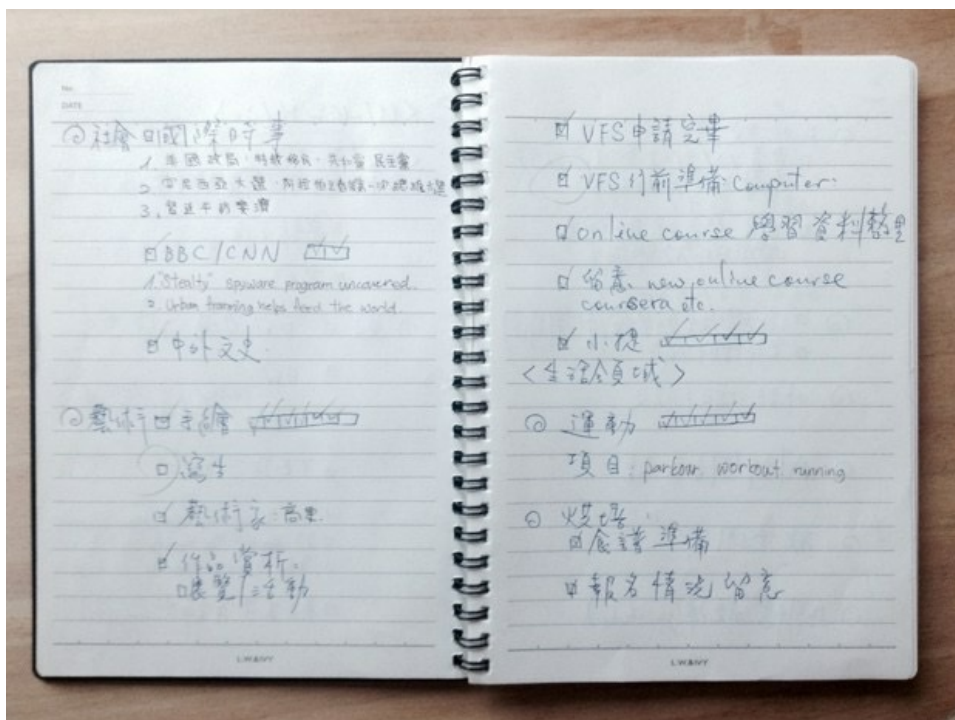 No.
DATE
社會 國際時事
1. 美國政局、移民、共和黨 民主黨
2. 大選
3. 習近平的
BBC/CNN
1. "Stealty" spyware program uncovered.
2. Urban framing helps feed the world.
中外文史
藝術 手繪
寫生
藝術家:高更
作品賞析.
展覽/活動
L.WANY
VFS申請完畢
VFS行前準備:Computer.
online course 學習資料整理
留意 new online course
coursera etc.
小提
<生活領域>
運動
項目:parkour workout running
烘培.
食譜準備
報名情況留意
L.WANY